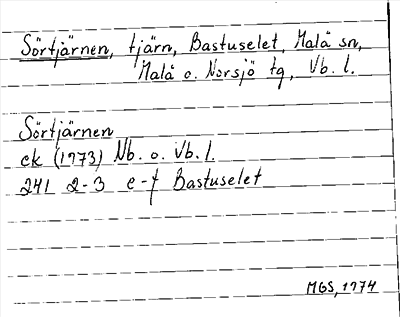 Sörtjärnen, tjärn, Bastuselet, Malå sn,
Malå o. Norsjö tg, Vb. l.
Sörtjärnen
ek (1973) Nb. o. Vb. l.
241 2-3 e-f Bastuselet
MGS, 1974